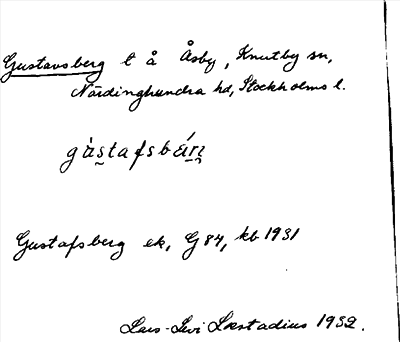 Gustavsberg t å Åsby, Knutby sn,
Närdinghundra hd, Stockholms l.
gùstafsbárı
Gustafsberg ek, G 84, kb 1931
Lars-Levi Læstadius 1932.